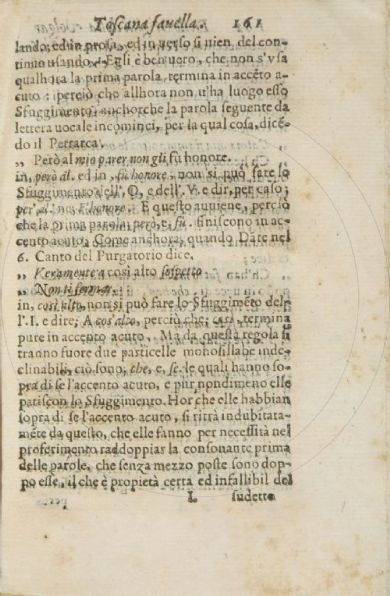 Toscana fauella. 161
lando, ed in prosa, ed in uerso si uien del con-
tinuo usando. Egli è ben uero, che non s'usa
qualhora la prima parola, termina in accẽto a-
cuto: perciò che allhora non u'ha luogo esso
Sfuggimento, anchorche la parola seguente da
lettera uocale incominci, per la qual cosa, dicẽ-
do il Petrarca.
„ Però al mio parer non gli fù honore.
in, però al. ed in, fù honore, non si può fare lo
Sfuggimento dell'O, e dell'V. e dir, per caso;
per'al mio, F'honore. E questo auuiene, perciò
che la prima parola, però, e, fù. finiscono in ac-
cento acuto. Come anchora, quando Dãte nel
6. Canto del Purgatorio dice.
„ Veramente a così alto sospetto
„ Non ti fermar.
in, così alto, non si può fare lo Sfuggimẽto del-
l'I. e dire; A cos'alto, perciò che; così, termina
pure in accento acuto. Ma da questa regola si
tranno fuore due particelle monosillabe inde-
clinabili, ciò sono, che, e, se. le quali hanno so-
pra di se l'accento acuto, e pur nondimeno elle
patiscon lo Sfuggimento. Hor che elle habbian
sopra di se l'accento acuto, si ritrà indubitata-
mẽte da questo, che elle fanno per necessità nel
proferimento raddoppiar la consonante prima
delle parole, che senza mezzo poste sono dop-
po esse, il che è propietà certa ed infallibil del
L sudetto